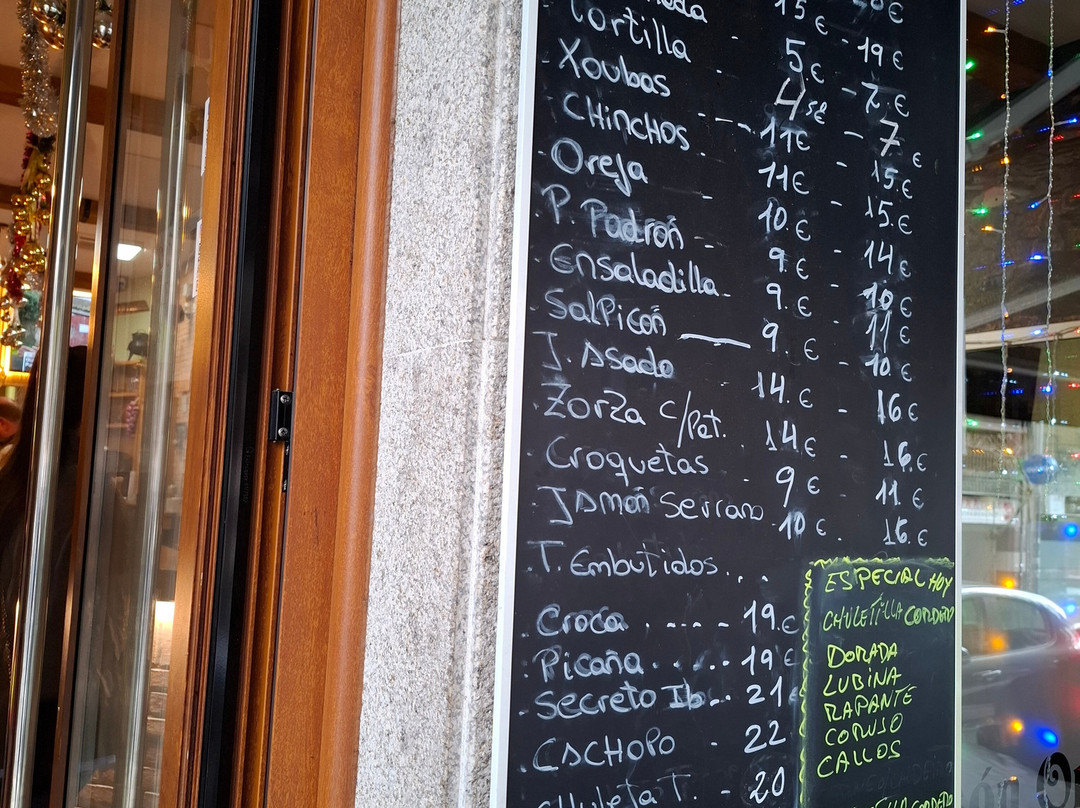 15 € - €
- 19 €
5 € - 7 €
Tortilla - 4,5 € - 7 €
Xoubas ---- 11 € - 15 €
Chinchos - 11 € - 15 €
Oreja -- 10 € - 14 €
P. Padrón -- 9 € - 10 €
Ensaladilla - 9 € - 11 €
Salpicón — 9 € - 10 €
J. Asado - 14 € - 16 €
Zorza c/Pat. 14 € - 16 €
Croquetas - 9 € - 11 €
Jamón Serrano. 10 € . 16 €
T. Embutidos . . .
Croca . ---- 19 €
Picaña ..... 19 €
Secreto Ib... 21 €
CACHOPO - 22
Chuleta T. - 20
ESPECIAL HOY
CHULETILLA CORDERO
DORADA
LUBINA
RAPANTE
CORUJO
CALLOS